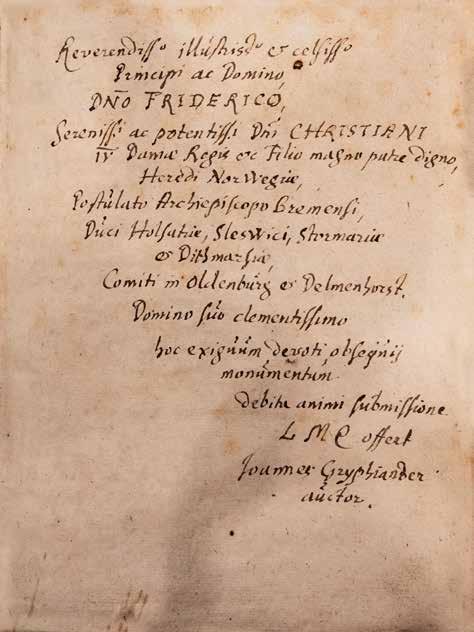 Reverendisso illustristo & celsisso
Principi ac Domino,
DNO FRIDERICO,
Serenissi ac potentissi Dni CHRISTIANI
IV Daniæ Regis &c Filio magno patre digno,
Heredi Norwegiæ,
Postulato Archiepiscopo Bremensi,
Duci Holsatiæ, Slesvici, Stormariæ
& Dithmarsiæ,
Comiti in Oldenburg & Delmenhorst.
Domino suo clementissimo
hoc exiguum devoti obsequij
monumentum
debita animi submissione
L M Q offert
Joannes Gryphiander
auctor.